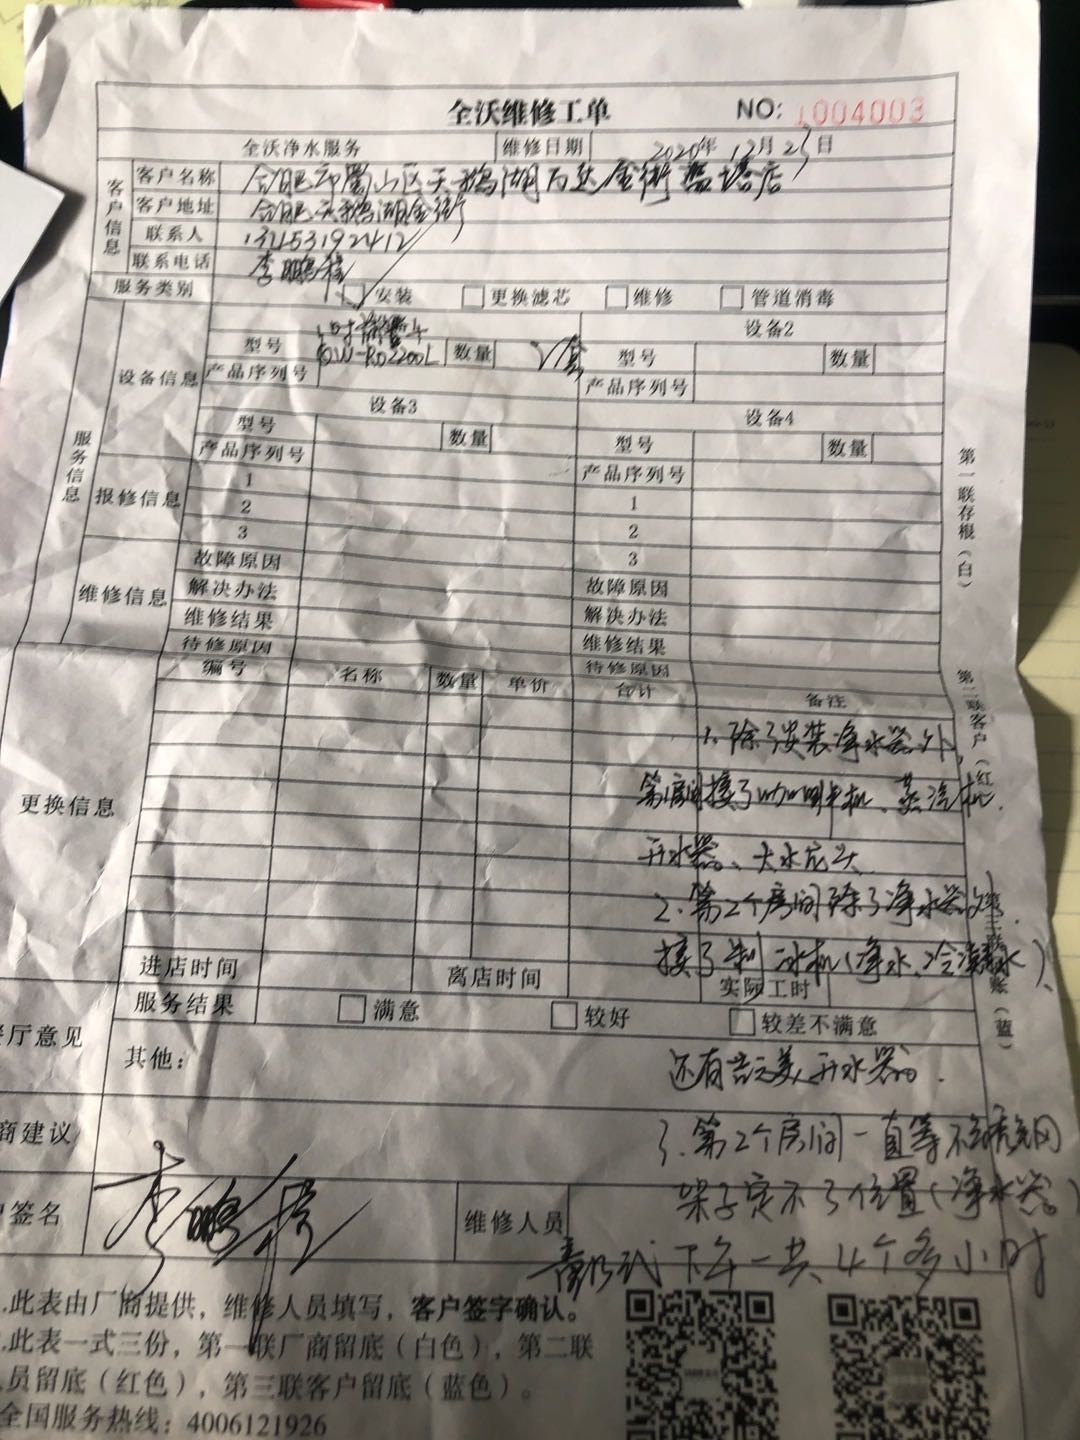 全沃维修工单 NO: 1004003
全沃净水服务 维修日期 2020年12月25日
客户信息
客户名称 合肥市蜀山区天鹅湖万达金街店
客户地址 合肥天鹅湖金街
联系人 132153192412
联系电话 李鹏程
服务类别 安装 更换滤芯 维修 管道消毒
服务信息
设备信息
设备2
型号 QW-RO2200L 数量 1套 型号 数量
产品序列号 产品序列号
设备3 设备4
型号 数量 型号 数量
产品序列号 产品序列号
报修信息
1 1
2 2
3 3
维修信息
故障原因 故障原因
解决办法 解决办法
维修结果 维修结果
待修原因 待修原因
更换信息
编号 名称 数量 单价 合计 备注
1.除了安装净水器外,
第1房间接了咖啡机、蒸汽机.
开水器、大水龙头
2.第2个房间除了净水器外.
接了制冰机(净水、冷凝水)、
进店时间 离店时间 实际工时
服务结果 满意 较好 较差不满意
厅意见
其他: 还有吉之美开水器.
商建议
3.第2个房间一直等不
架子定不了位置(净水器)
签名 李鹏程 维修人员
下午一共4个多小时
.此表由厂商提供，维修人员填写，客户签字确认。
.此表一式三份，第一联厂商留底（白色），第二联
员留底（红色），第三联客户留底（蓝色）。
全国服务热线：4006121926
第一联存根（白）
第二联客户（红
第三联 账（蓝）